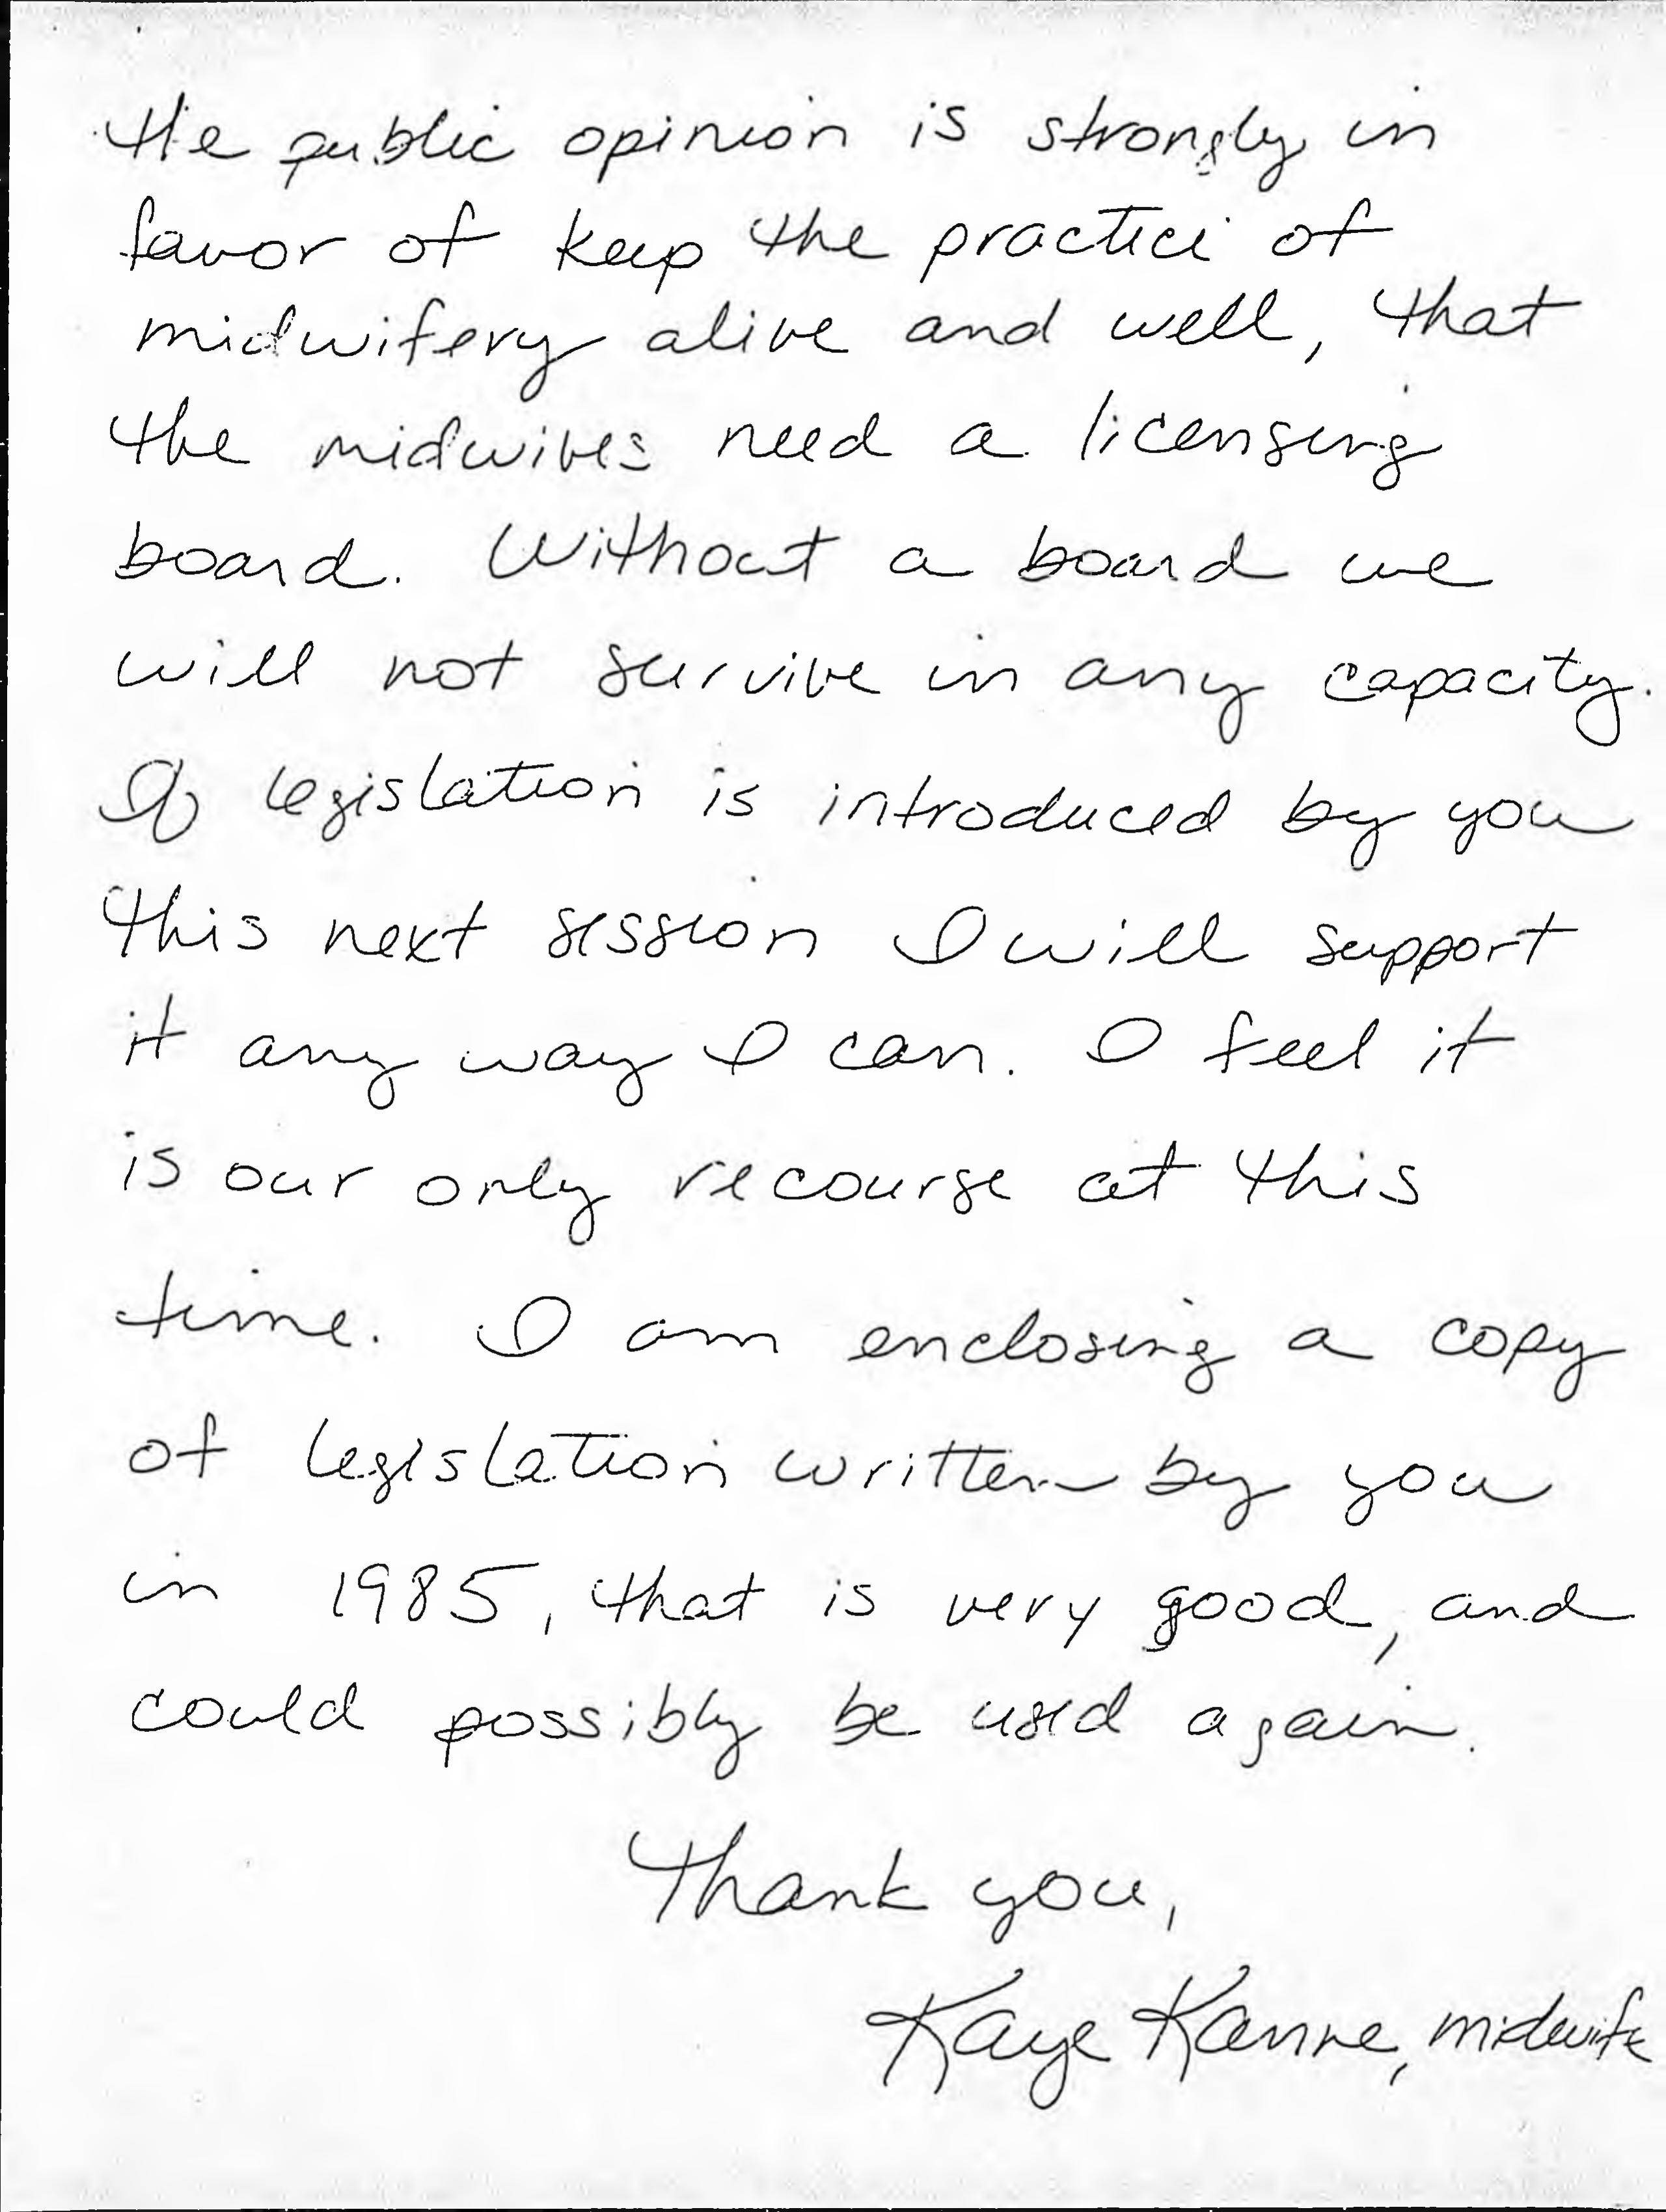 the public opinion is strongly in
favor of keep the practice of
midwifery alive and well, that
the midwives need a licensing
board. Without a board we
will not survive in any capacity.
If legislation is introduced by you
this next session I will support
it any way I can. I feel it
is our only recourse at this
time. I am enclosing a copy
of legislation written by you
in 1985, that is very good, and
could possibly be used again.
Thank you,
Kaye Kanne, midwife